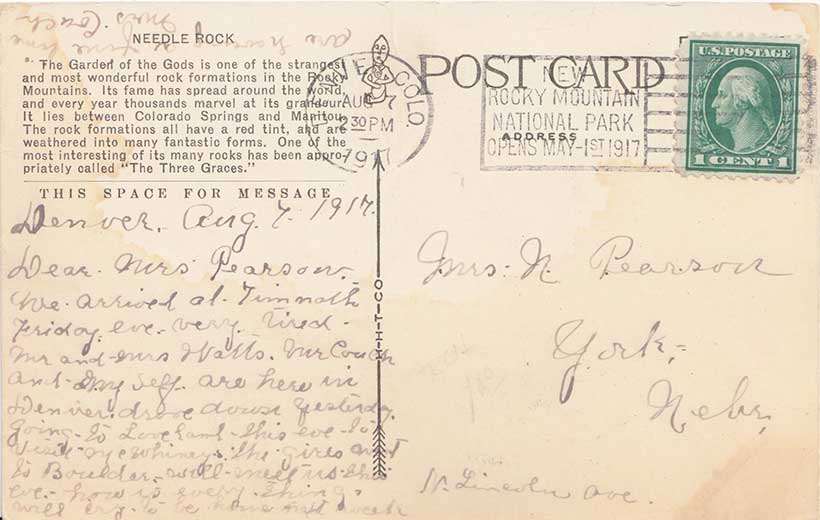 NEEDLE ROCK
The Garden of the Gods is one of the strangest
and most wonderful rock formations in the Rocky
Mountains. Its fame has spread around the world,
and every year thousands marvel at its grandeur.
It lies between Colorado Springs and Manitou.
The rock formations all have a red tint, and are
weathered into many fantastic forms. One of the
most interesting of its many rocks has been appro-
priately called "The Three Graces."
THIS SPACE FOR MESSAGE
Denver, Aug. 7. 1917.
Dear. Mrs Pearson.
We arrived at. Timnath
Friday. eve. very. tired.
Mr and Mrs Watts. Mr Couch
and my self. are here in
Denver. drove down yesterday.
Going to Loveland this eve to
visit the girls
to Boulder. will meet us
eve. how is every thing.
will try. to be home next week
are having a fine time
Mrs Couch
H-H-T-CO
POST CARD
ADDRESS
COLO.
AUG 7
2 30 PM
1917
NEW
ROCKY MOUNTAIN
NATIONAL PARK
OPENS MAY-1ST 1917
U.S. POSTAGE
1 CENT 1
Mrs. N. Pearson
York,
Nebr,
N. Lincoln Ave.